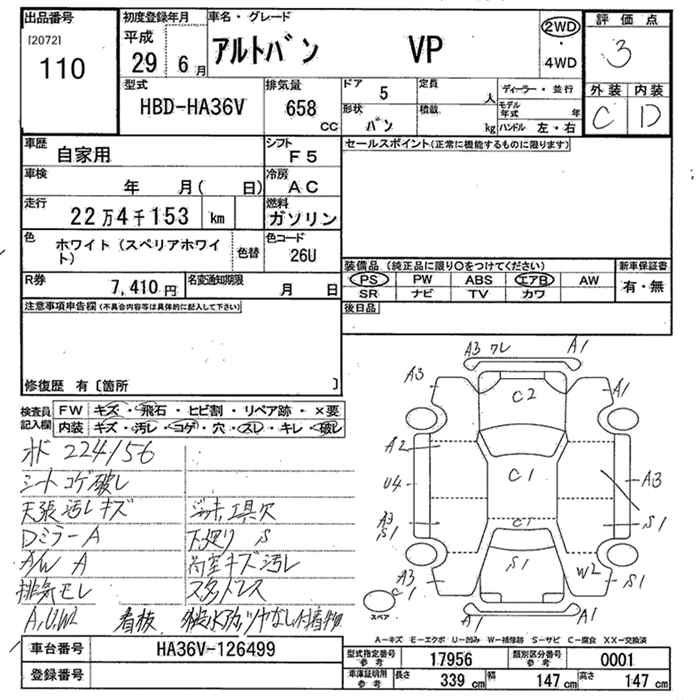 出品番号 初度登録年月 車名・グレード 2WD 評価点
[2072] 平成 アルトバン VP ・ 3
110 29 6月 4WD
型式 排気量 ドア 5 定員 人 ディーラー・並行 外装 内装
HBD-HA36V 658 cc 形状 バン 積載 kg モデル年式 年 C D
ハンドル 左・右
車歴 自家用 シフト F5 セールスポイント(正常に機能するものに限ります)
車検 年 月( 日) 冷房 AC
走行 22万4千153 km 燃料 ガソリン
色 ホワイト(スペリアホワイト) 色替 色コード 26U
装備品(純正品に限り○をつけてください) 新車保証書
R券 7,410円 名変通知期限 月 日 PS PW ABS エアB AW 有・無
SR ナビ TV カワ
注意事項申告欄(不具合内容等は具体的に記入して下さい) 後日品
修復歴 有〔箇所 〕
検査員記入欄 FW キズ・飛石・ヒビ割・リペア跡・×要
内装 キズ・汚レ・コゲ・穴・スレ・キレ・破レ
オド 224156
シート コゲ破レ
天張汚レキズ ジャッキ工具欠
DミラーA 下廻り S
A/W A 荷室キズ汚レ
排気モレ スタッドレス
A,U,W2 看板 外装水アカツヤなし付着物
A3 ワレ A1
A3 C2 A1
A2
U4 C1 A3
A3 S1 C1 S1
S1 W2
A3 C1 S1
スペア
A1 A1
A-キズ E-エクボ U-凹み W-補修跡 S-サビ C-腐食 XX-交換済
車台番号 HA36V-126499
型式指定番号 参考 17956 類別区分番号 参考 0001
登録番号
車庫証明用 参考 長さ 339 cm 幅 147 cm 高さ 147 cm